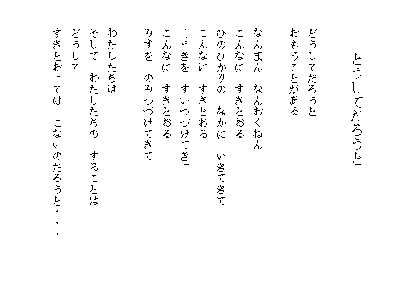 どうしてだろうと
どうしてだろうと
おもうことがある
なんまん なんおくねん
こんなに すきとおる
ひのひかりの なかに いきてきて
こんなに すきとおる
くうきを すいつづけてきて
こんなに すきとおる
みずを のみつづけてきて
わたしたちは
そして わたしたちの することは
どうして
すきとおっては こないのだろうと・・・